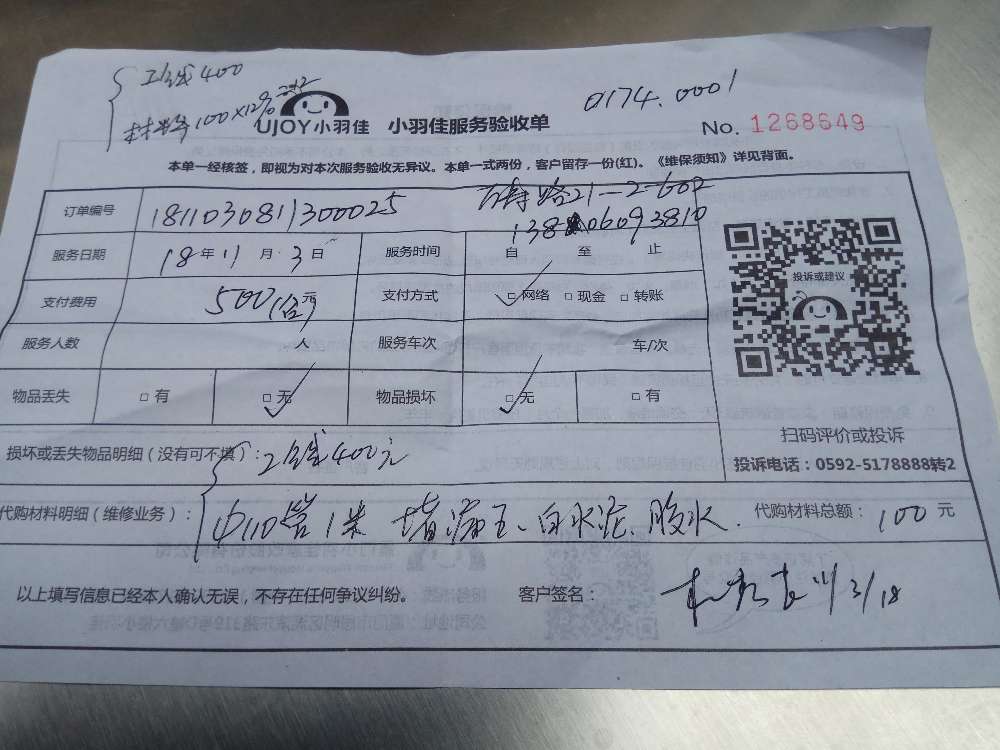 工钱400
材料100×12%=12
0174.0001
UJOY小羽佳 小羽佳服务验收单
No. 1268649
本单一经核签，即视为对本次服务验收无异议。本单一式两份，客户留存一份(红)。《维保须知》详见背面。
订单编号 1811030811300025
路21-2-602
138 06093810
服务日期 18年11月3日 服务时间 自 至 止
支付费用 500元 支付方式 □网络 □现金 □转账
投诉或建议
服务人数 人 服务车次 车/次
物品丢失 □有 □无 物品损坏 □无 □有
扫码评价或投诉
投诉电话：0592-5178888转2
损坏或丢失物品明细（没有可不填）： 工钱400元
代购材料明细（维修业务）： 110管1米 堵漏王、白水泥、胶水. 代购材料总额： 100元
以上填写信息已经本人确认无误，不存在任何争议纠纷。 客户签名： 11/3/18